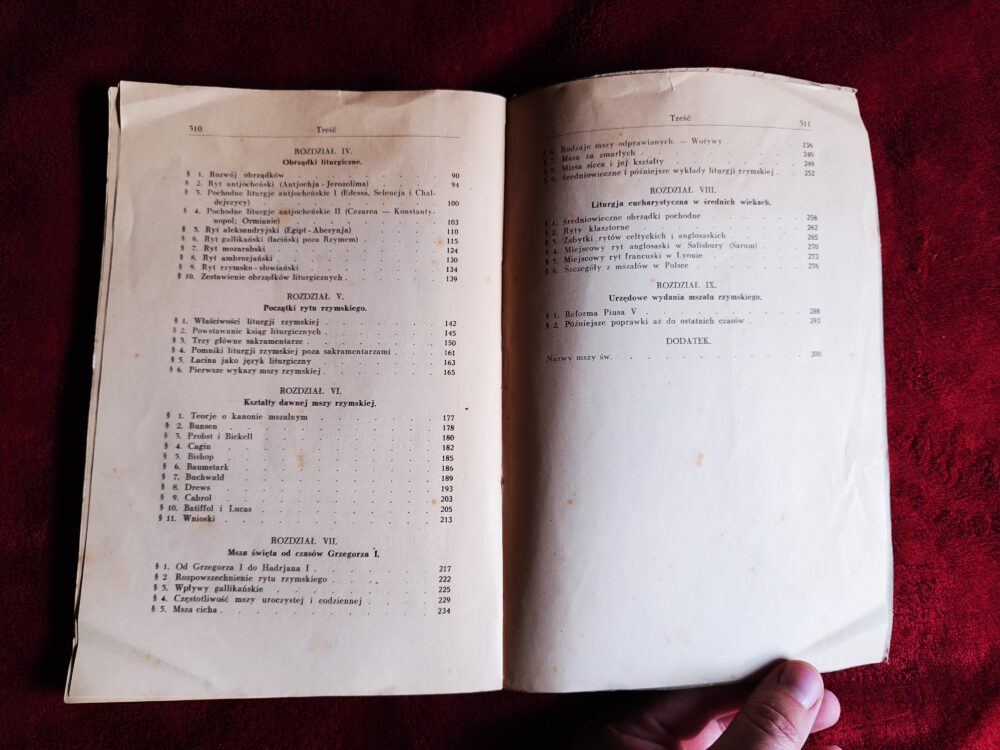 310 Treść
ROZDZIAŁ IV.
Obrządki liturgiczne.
§ 1. Rozwój obrządków . . . 90
§ 2. Ryt antjocheński (Antjochja - Jerozolima) . . . 94
§ 3. Pochodne liturgje antjocheńskie I (Edessa, Seleucja i Chal-
dejczycy) . . . 100
§ 4. Pochodne liturgje antjocheńskie II (Cezarea — Konstanty-
nopol; Ormianie) . . . 103
§ 5. Ryt aleksandryjski (Egipt - Abesynja) . . . 110
§ 6. Ryt gallikański (łaciński poza Rzymem) . . . 115
§ 7. Ryt mozarabski . . . 124
§ 8. Ryt ambrozjański . . . 130
§ 9. Ryt rzymsko - słowiański . . . 134
§ 10. Zestawienie obrządków liturgicznych . . . 139
ROZDZIAŁ V.
Początki rytu rzymskiego.
§ 1. Właściwości liturgji rzymskiej . . . 142
§ 2. Powstawanie ksiąg liturgicznych . . . 145
§ 3. Trzy główne sakramentarze . . . 150
§ 4. Pomniki liturgji rzymskiej poza sakramentarzami . . . 161
§ 5. Łacina jako język liturgiczny . . . 163
§ 6. Pierwsze wykazy mszy rzymskiej . . . 165
ROZDZIAŁ VI.
Kształty dawnej mszy rzymskiej.
§ 1. Teorje o kanonie mszalnym . . . 177
§ 2. Bunsen . . . 178
§ 3. Probst i Bickell . . . 180
§ 4. Cagin . . . 182
§ 5. Bishop . . . 185
§ 6. Baumstark . . . 186
§ 7. Buchwald . . . 189
§ 8. Drews . . . 193
§ 9. Cabrol . . . 203
§ 10. Batiffol i Lucas . . . 205
§ 11. Wnioski . . . 213
ROZDZIAŁ VII.
Msza święta od czasów Grzegorza I.
§ 1. Od Grzegorza I do Hadrjana I . . . 217
§ 2 Rozpowszechnienie rytu rzymskiego . . . 222
§ 3. Wpływy gallikańskie . . . 225
§ 4. Częstotliwość mszy uroczystej i codziennej . . . 229
§ 5. Msza cicha . . . 234
Treść 311
§ 6. Rodzaje mszy odprawianych. — Wotywy . . . 236
§ 7. Msza za zmarłych . . . 240
§ 8. Missa sicca i jej kształty . . . 249
§ 9. Średniowieczne i późniejsze wykłady liturgji rzymskiej . . . 252
ROZDZIAŁ VIII.
Liturgja eucharystyczna w średnich wiekach.
§ 1. Średniowieczne obrządki pochodne . . . 258
§ 2. Ryty klasztorne . . . 262
§ 3. Zabytki rytów celtyckich i anglosaskich . . . 265
§ 4. Miejscowy ryt anglosaski w Salisbury (Sarum) . . . 270
§ 5. Miejscowy ryt francuski w Lyonie . . . 273
§ 6. Szczegóły z mszałów w Polsce . . . 276
ROZDZIAŁ IX.
Urzędowe wydania mszału rzymskiego.
§ 1. Reforma Piusa V . . . 288
§ 2. Późniejsze poprawki aż do ostatnich czasów . . . 293
DODATEK.
Nazwy mszy św. . . . 300